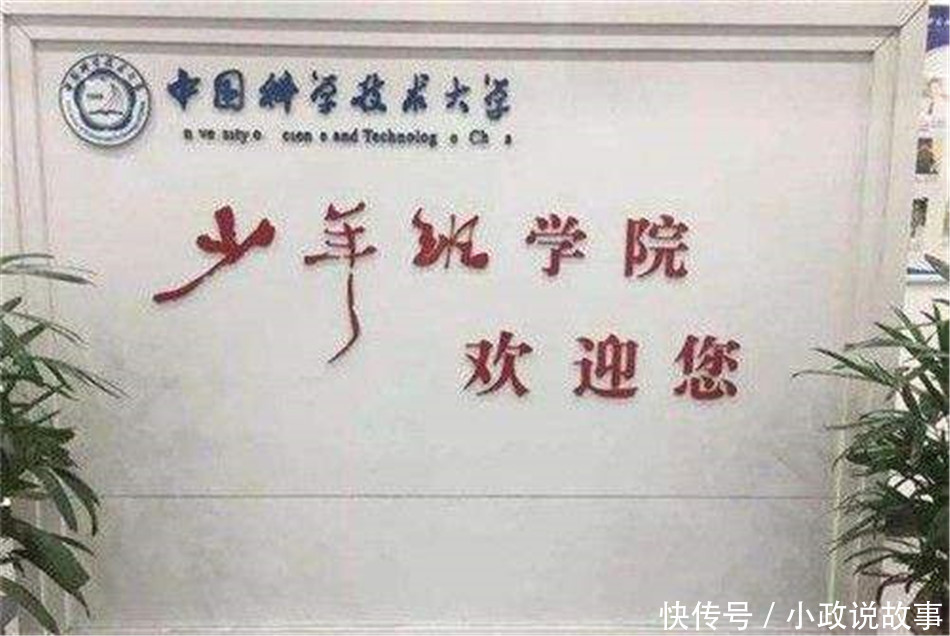 中国科学技术大学
n ve sity o cien e and Technolog o Ch a
少年班学院
欢迎您
快传号 / 小政说故事